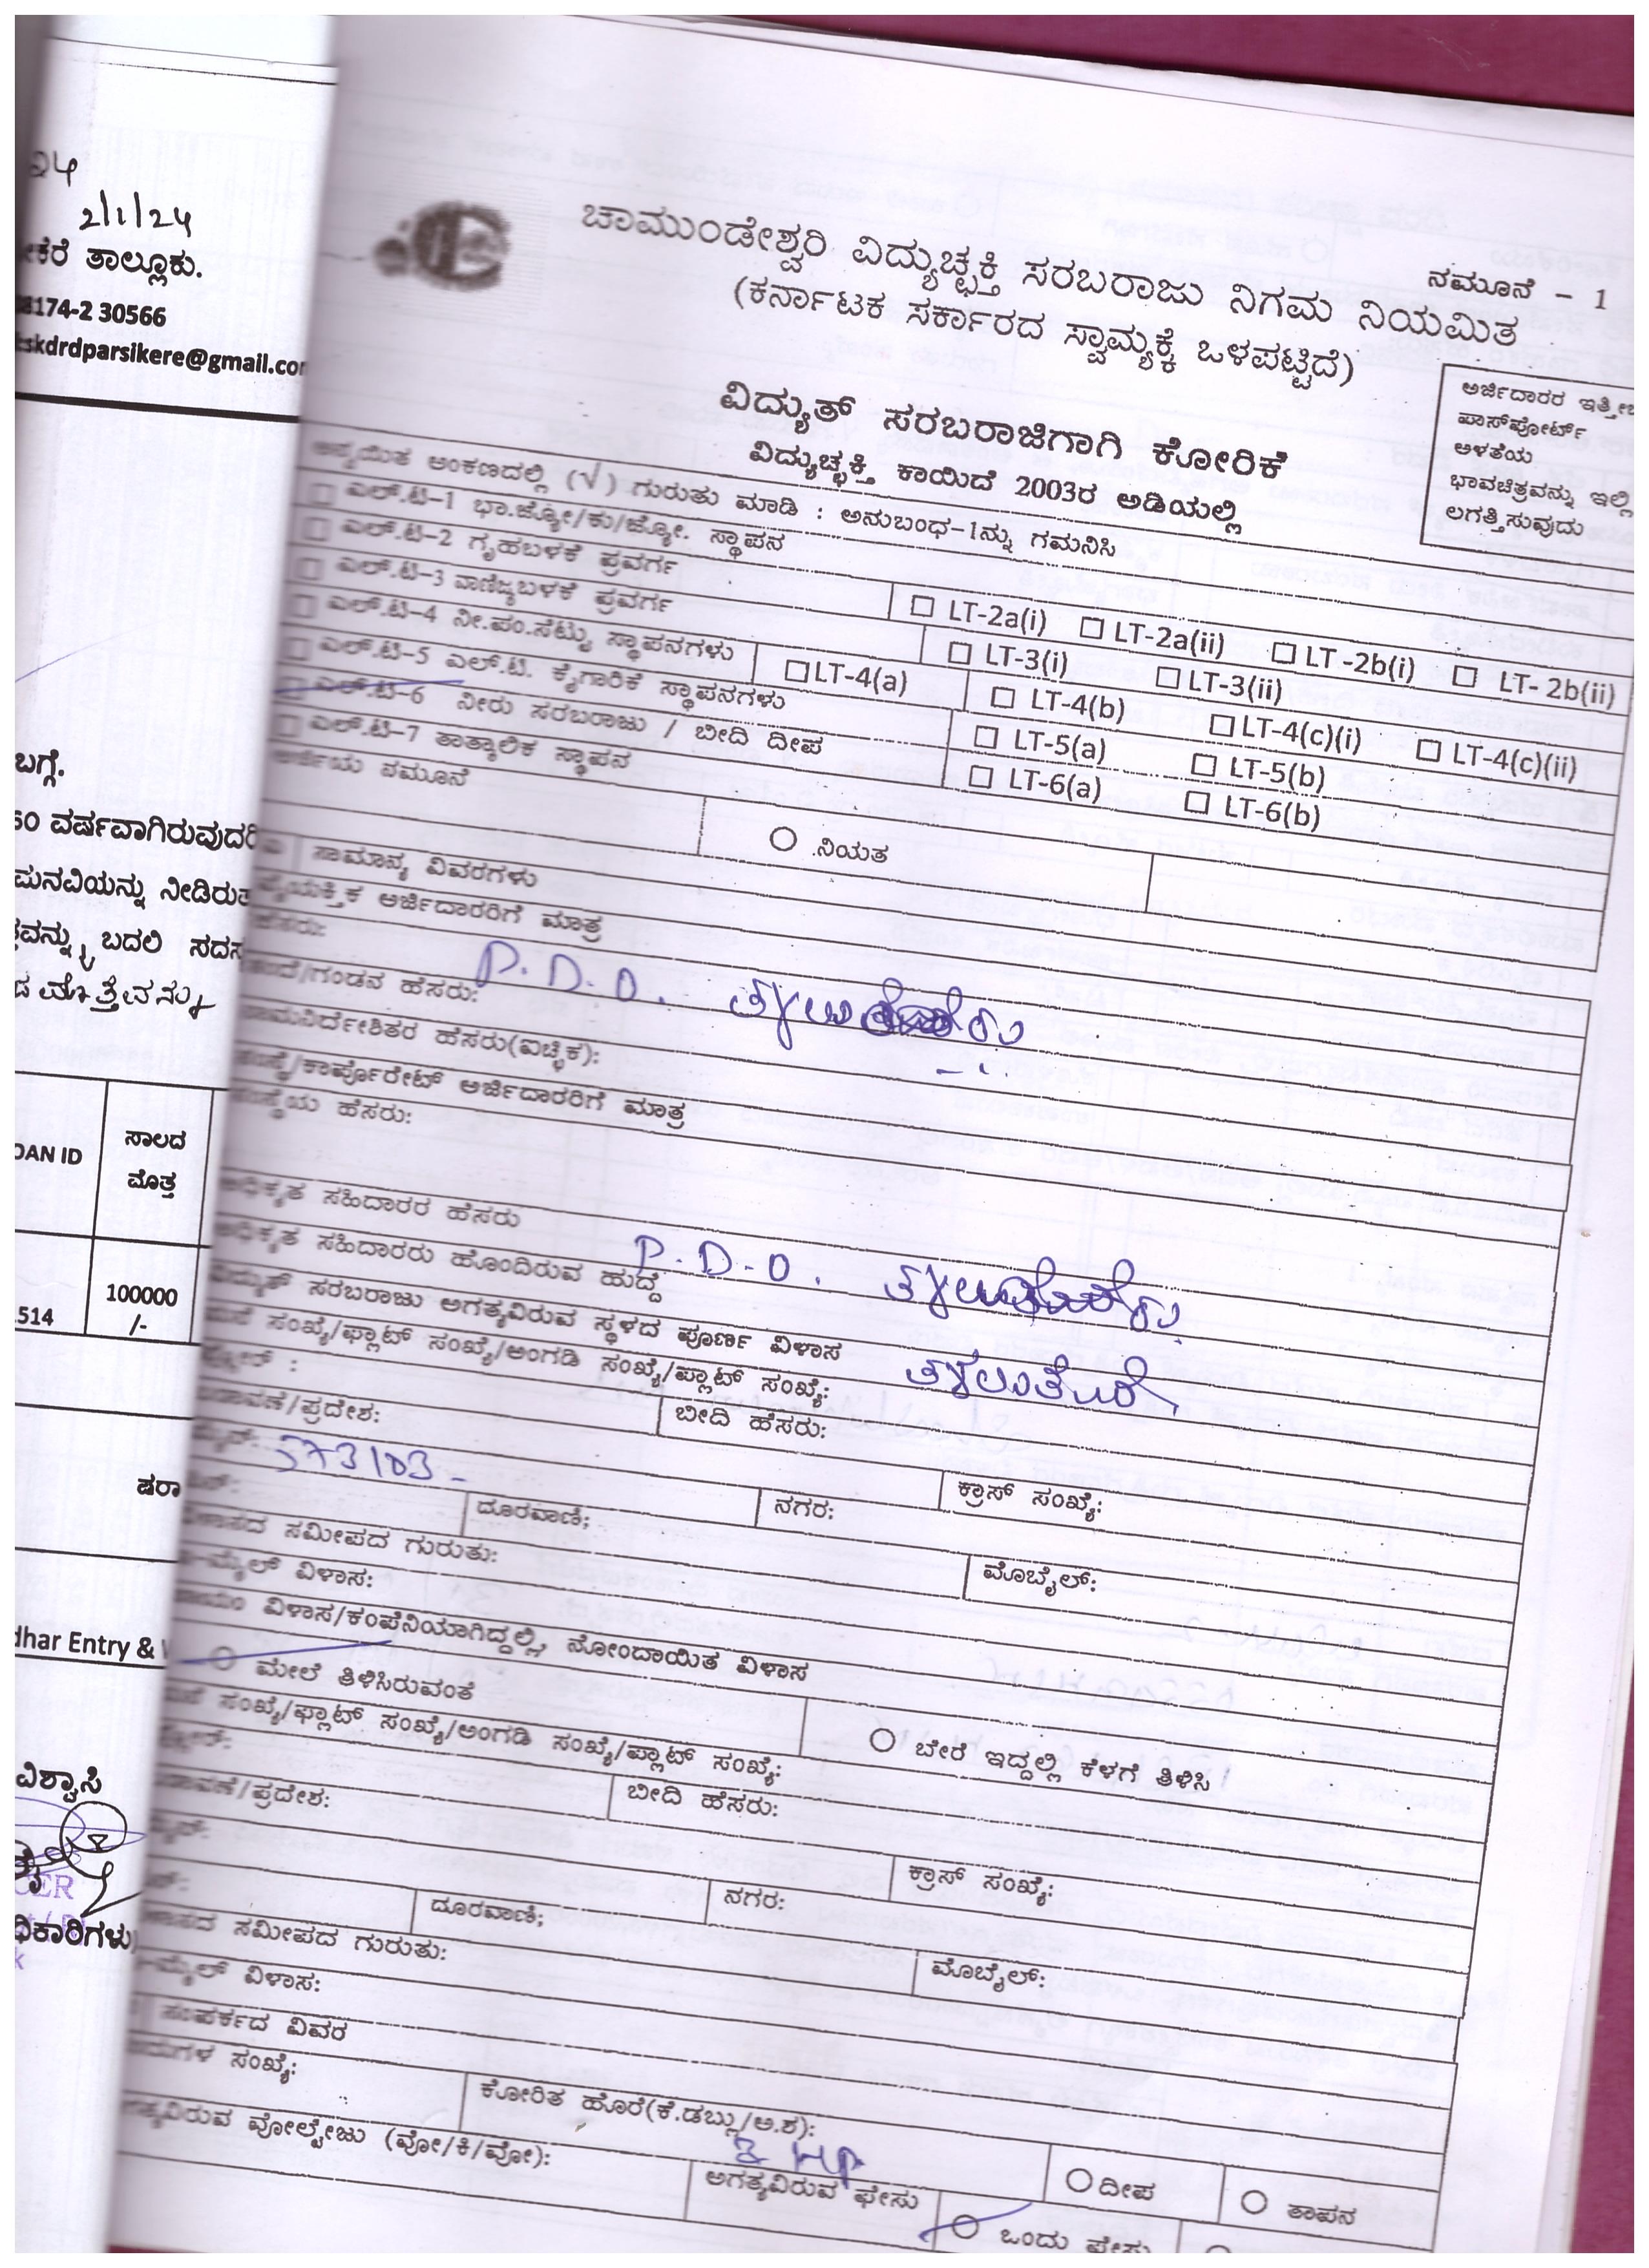 24
2/1/24
ಕೆರೆ ತಾಲ್ಲೂಕು.
8174-2 30566
skdrdparsikere@gmail.com
ಬಗ್ಗೆ.
60 ವರ್ಷವಾಗಿರುವುದರಿ
ಮನವಿಯನ್ನು ನೀಡಿರುತ
ವನ್ನು ಬದಲಿ ಸದಸ
ಮೊತ್ತವನ್ನು
OAN ID
ಸಾಲದ
ಮೊತ್ತ
514
100000
/-
ಷರಾ
dhar Entry &
ವಿಶ್ವಾಸಿ
CER
ಧಿಕಾರಿಗಳು
ನಮೂನೆ - 1
ಚಾಮುಂಡೇಶ್ವರಿ ವಿದ್ಯುಚ್ಛಕ್ತಿ ಸರಬರಾಜು ನಿಗಮ ನಿಯಮಿತ
(ಕರ್ನಾಟಕ ಸರ್ಕಾರದ ಸ್ವಾಮ್ಯಕ್ಕೆ ಒಳಪಟ್ಟಿದೆ)
ವಿದ್ಯುತ್ ಸರಬರಾಜಿಗಾಗಿ ಕೋರಿಕೆ
ವಿದ್ಯುಚ್ಛಕ್ತಿ ಕಾಯಿದೆ 2003ರ ಅಡಿಯಲ್ಲಿ
ಅರ್ಜಿದಾರರ ಇತ್ತೀಚಿ
ಪಾಸ್‌ಪೋರ್ಟ್
ಅಳತೆಯ
ಭಾವಚಿತ್ರವನ್ನು ಇಲ್ಲಿ
ಲಗತ್ತಿಸುವುದು
ಅನ್ವಯಿತ ಅಂಕಣದಲ್ಲಿ (√) ಗುರುತು ಮಾಡಿ : ಅನುಬಂಧ-1ನ್ನು ಗಮನಿಸಿ
□ ಎಲ್.ಟಿ-1 ಭಾ.ಜ್ಯೋ/ಕು/ಜ್ಯೋ. ಸ್ಥಾಪನ
□ ಎಲ್.ಟಿ-2 ಗೃಹಬಳಕೆ ಪ್ರವರ್ಗ □ LT-2a(i) □ LT-2a(ii) □ LT -2b(i) □ LT- 2b(ii)
□ ಎಲ್.ಟಿ-3 ವಾಣಿಜ್ಯಬಳಕೆ ಪ್ರವರ್ಗ □ LT-3(i) □ LT-3(ii)
□ ಎಲ್.ಟಿ-4 ನೀ.ಪಂ.ಸೆಟ್ಟು ಸ್ಥಾಪನಗಳು □ LT-4(a) □ LT-4(b) □ LT-4(c)(i) □ LT-4(c)(ii)
□ ಎಲ್.ಟಿ-5 ಎಲ್.ಟಿ. ಕೈಗಾರಿಕೆ ಸ್ಥಾಪನಗಳು □ LT-5(a) □ LT-5(b)
□ ಎಲ್.ಟಿ-6 ನೀರು ಸರಬರಾಜು / ಬೀದಿ ದೀಪ □ LT-6(a) □ LT-6(b)
□ ಎಲ್.ಟಿ-7 ತಾತ್ಕಾಲಿಕ ಸ್ಥಾಪನ
ಅರ್ಜಿಯ ನಮೂನೆ ○ ನಿಯತ
ಸಾಮಾನ್ಯ ವಿವರಗಳು
ವೈಯಕ್ತಿಕ ಅರ್ಜಿದಾರರಿಗೆ ಮಾತ್ರ
ಹೆಸರು: P.D.O.
ತಂದೆ/ಗಂಡನ ಹೆಸರು:
ನಾಮನಿರ್ದೇಶಿತರ ಹೆಸರು(ಐಚ್ಛಿಕ):
ಸಂಸ್ಥೆ/ಕಾರ್ಪೊರೇಟ್ ಅರ್ಜಿದಾರರಿಗೆ ಮಾತ್ರ
ಸಂಸ್ಥೆಯ ಹೆಸರು:
ಅಧಿಕೃತ ಸಹಿದಾರರ ಹೆಸರು
ಅಧಿಕೃತ ಸಹಿದಾರರು ಹೊಂದಿರುವ ಹುದ್ದೆ P.D.O.
ವಿದ್ಯುತ್ ಸರಬರಾಜು ಅಗತ್ಯವಿರುವ ಸ್ಥಳದ ಪೂರ್ಣ ವಿಳಾಸ
ಮನೆ ಸಂಖ್ಯೆ/ಫ್ಲಾಟ್ ಸಂಖ್ಯೆ/ಅಂಗಡಿ ಸಂಖ್ಯೆ/ಪ್ಲಾಟ್ ಸಂಖ್ಯೆ:
ಬೀದಿ ಹೆಸರು:
ಬಡಾವಣೆ/ಪ್ರದೇಶ:
ಕ್ರಾಸ್ ಸಂಖ್ಯೆ:
573103 -
ನಗರ:
ದೂರವಾಣಿ;
ಮೊಬೈಲ್:
ವಿಳಾಸದ ಸಮೀಪದ ಗುರುತು:
ಇ-ಮೈಲ್ ವಿಳಾಸ:
ಖಾಯಂ ವಿಳಾಸ/ಕಂಪೆನಿಯಾಗಿದ್ದಲ್ಲಿ, ನೋಂದಾಯಿತ ವಿಳಾಸ
○ ಮೇಲೆ ತಿಳಿಸಿರುವಂತೆ ○ ಬೇರೆ ಇದ್ದಲ್ಲಿ ಕೆಳಗೆ ತಿಳಿಸಿ
ಮನೆ ಸಂಖ್ಯೆ/ಫ್ಲಾಟ್ ಸಂಖ್ಯೆ/ಅಂಗಡಿ ಸಂಖ್ಯೆ/ಪ್ಲಾಟ್ ಸಂಖ್ಯೆ:
ಬೀದಿ ಹೆಸರು:
ಬಡಾವಣೆ/ಪ್ರದೇಶ:
ಕ್ರಾಸ್ ಸಂಖ್ಯೆ:
ನಗರ:
ದೂರವಾಣಿ;
ಮೊಬೈಲ್:
ವಿಳಾಸದ ಸಮೀಪದ ಗುರುತು:
ಇ-ಮೈಲ್ ವಿಳಾಸ:
ಸಂಪರ್ಕದ ವಿವರ
ಸಂಖ್ಯೆ:
ಕೋರಿತ ಹೊರೆ(ಕೆ.ಡಬ್ಲ್ಯು/ಅ.ಶ): HP ○ ದೀಪ ○ ತಾಪನ
ಅಗತ್ಯವಿರುವ ವೋಲ್ಟೇಜು (ವೋ/ಕಿ/ವೋ):
ಅಗತ್ಯವಿರುವ ಫೇಸು ○ ಒಂದು ಫೇಸು